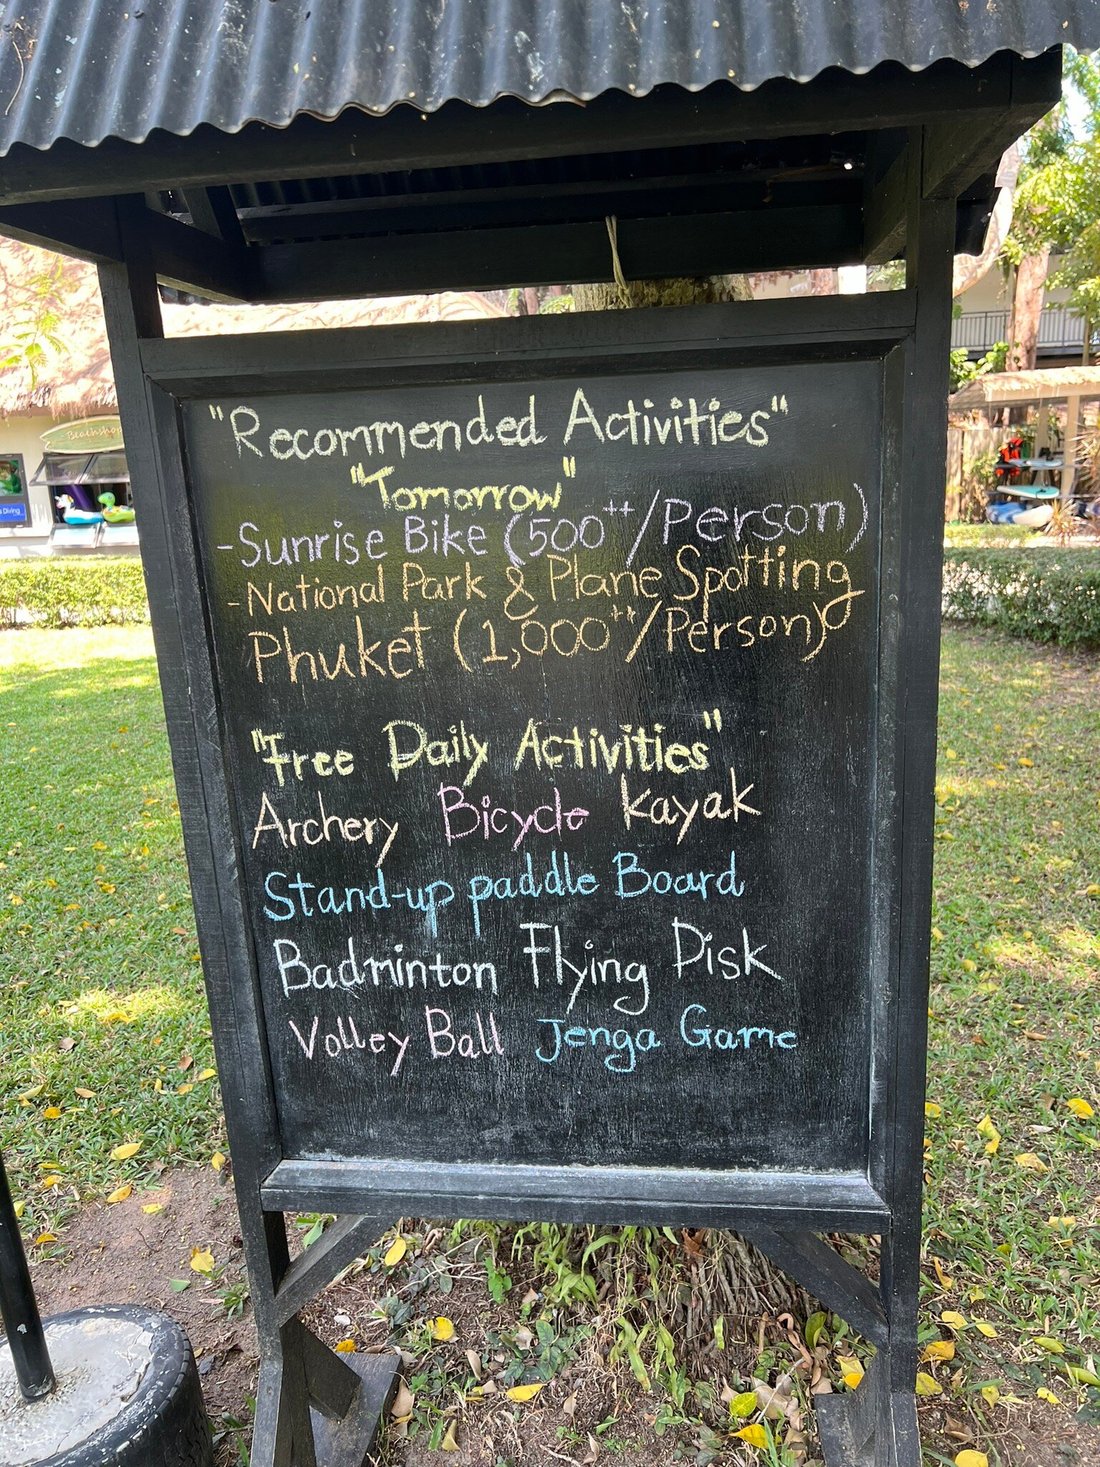 "Recommended Activities"
"Tomorrow"
-Sunrise Bike (500++/Person)
-National Park & Plane Spotting
Phuket (1,000++/Person)
"Free Daily Activities"
Archery Bicycle Kayak
Stand-up paddle Board
Badminton Flying Disk
Volley Ball Jenga Game
Beachshop
Diving